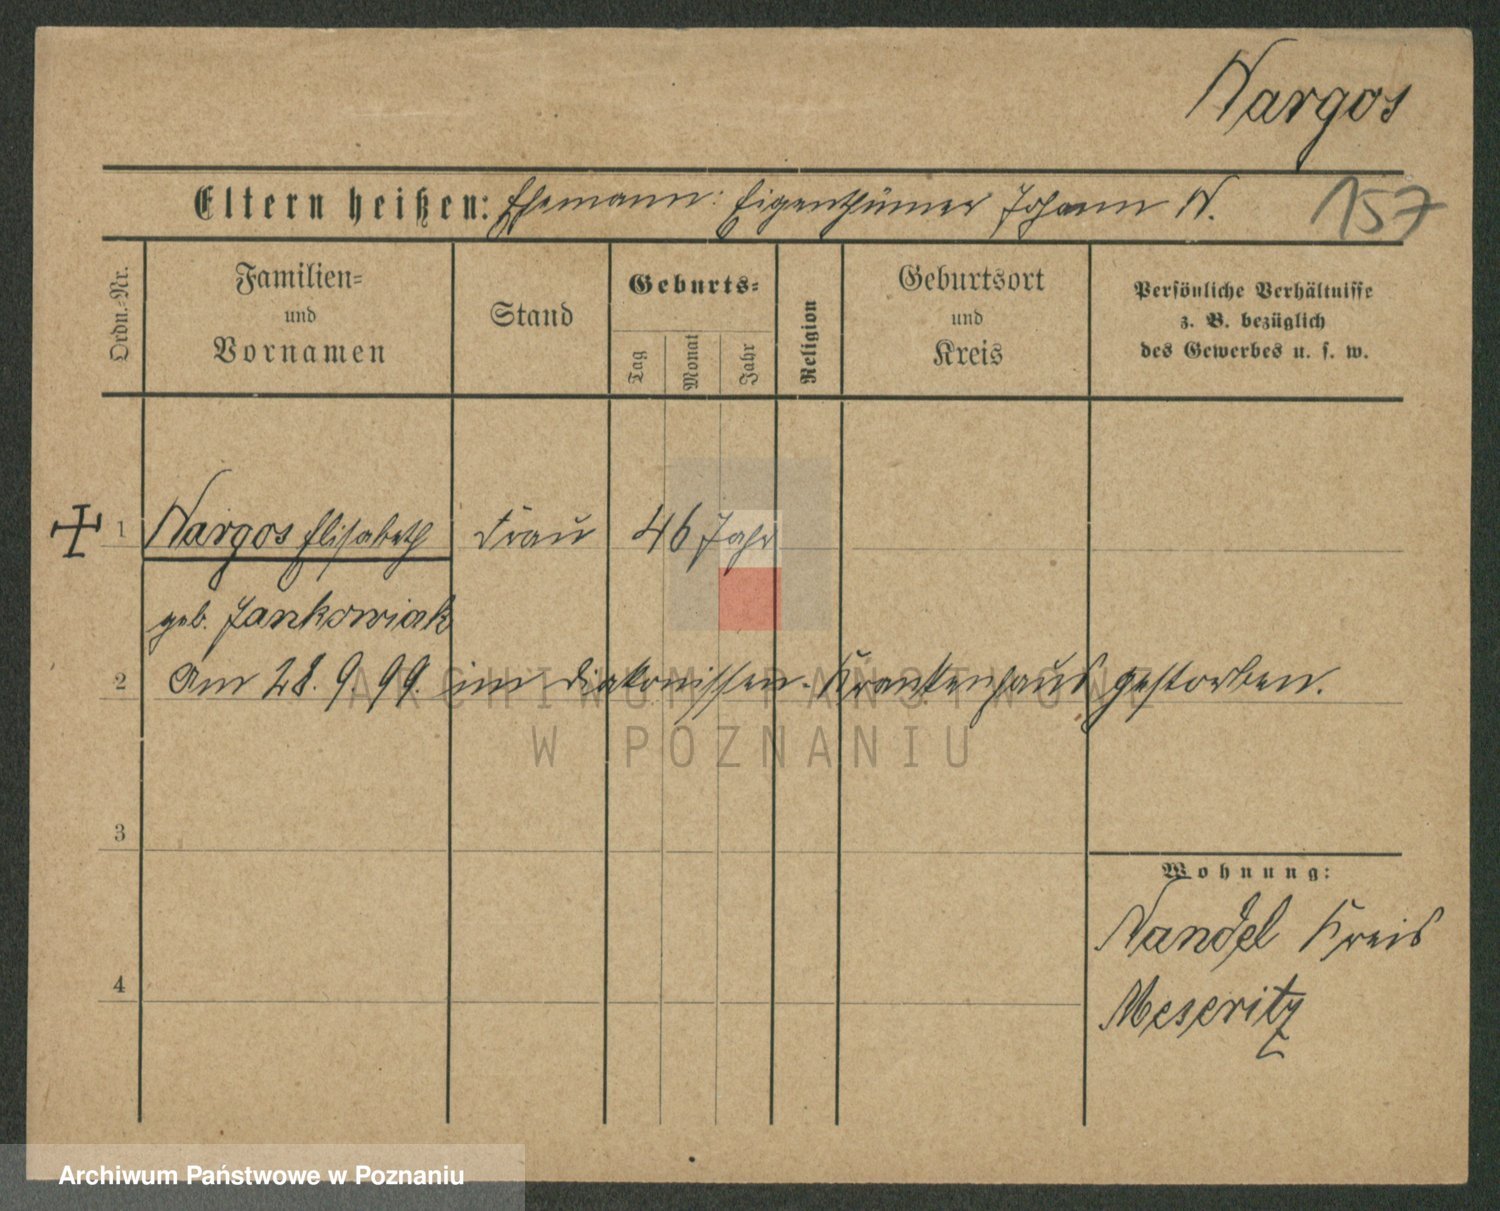 Nargos
Eltern heißen: Ehemann: Eigenthümer Johann N.
157
Ordn.-Nr.
Familien-
und
Vornamen
Stand
Geburts-
Tag
Monat
Jahr
Religion
Geburtsort
und
Kreis
Persönliche Verhältnisse
z. B. bezüglich
des Gewerbes u. s. w.
1 Nargos Elisabeth Frau 46 Jahr
geb. Jankowiak
2 Am 28. 9. 99. im Diakonissen-Krankenhaus gestorben.
ARCHIWUM PAŃSTWOWE
W POZNANIU
3
Wohnung:
Nandel Kreis
4
Meseritz
Archiwum Państwowe w Poznaniu